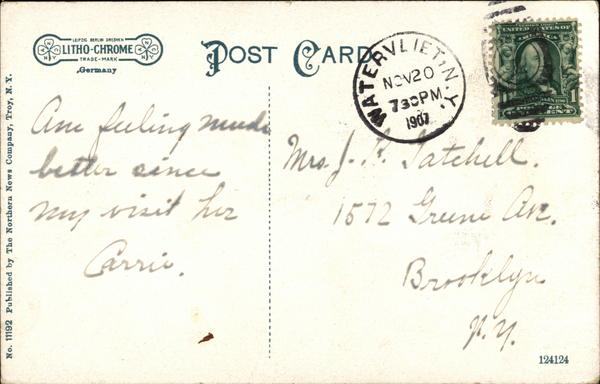 LEIPZIG BERLIN DRESDEN
LITHO-CHROME
TRADE-MARK
N Y
N Y
Germany
POST CARD
WATERVLIET, N.Y.
NOV 20
730 PM
1907
No. 11192 Published by The Northern News Company, Troy, N.Y.
Am feeling much
better since
my visit her
Carrie.
Mrs. J. Gatchell.
1572 Greene Ave.
Brooklyn
N.Y.
124124